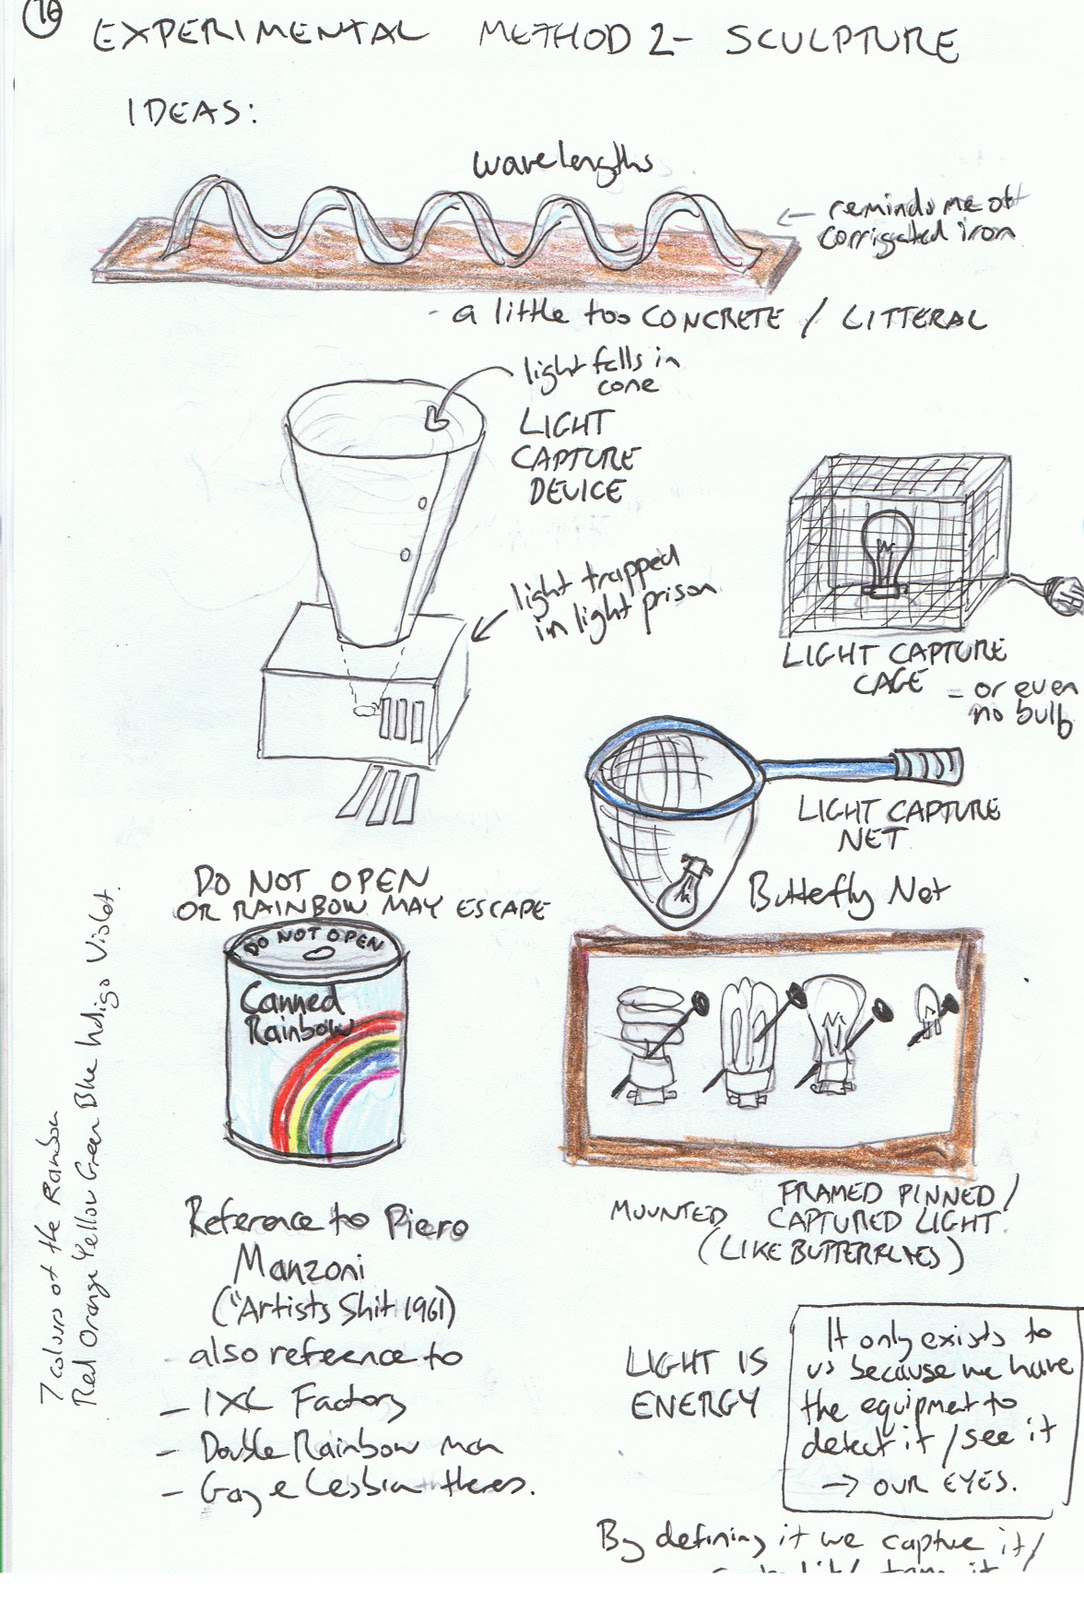 10
EXPERIMENTAL METHOD 2 - SCULPTURE
IDEAS:
wavelengths
← reminds me of
corrigated iron
- a little too CONCRETE / LITTERAL
light falls in
cone
LIGHT
CAPTURE
DEVICE
light trapped
in light prison
LIGHT CAPTURE
CAGE - or even
no bulb
LIGHT CAPTURE
NET
Butterfly Net
DO NOT OPEN
OR RAINBOW MAY ESCAPE
DO NOT OPEN
Canned
Rainbow
7 colours of the Rainbow
Red Orange Yellow Green Blue Indigo Violet.
FRAMED PINNED /
MOUNTED / CAPTURED LIGHT
(LIKE BUTTERFLIES)
Reference to Piero
Manzoni
("Artists Shit 1961)
- also reference to
- IXL Factory
- Double Rainbow man
- Gay & Lesbian
LIGHT IS
ENERGY
It only exists to
us because we have
the equipment to
detect it / see it
→ OUR EYES.
By defining it we capture it /